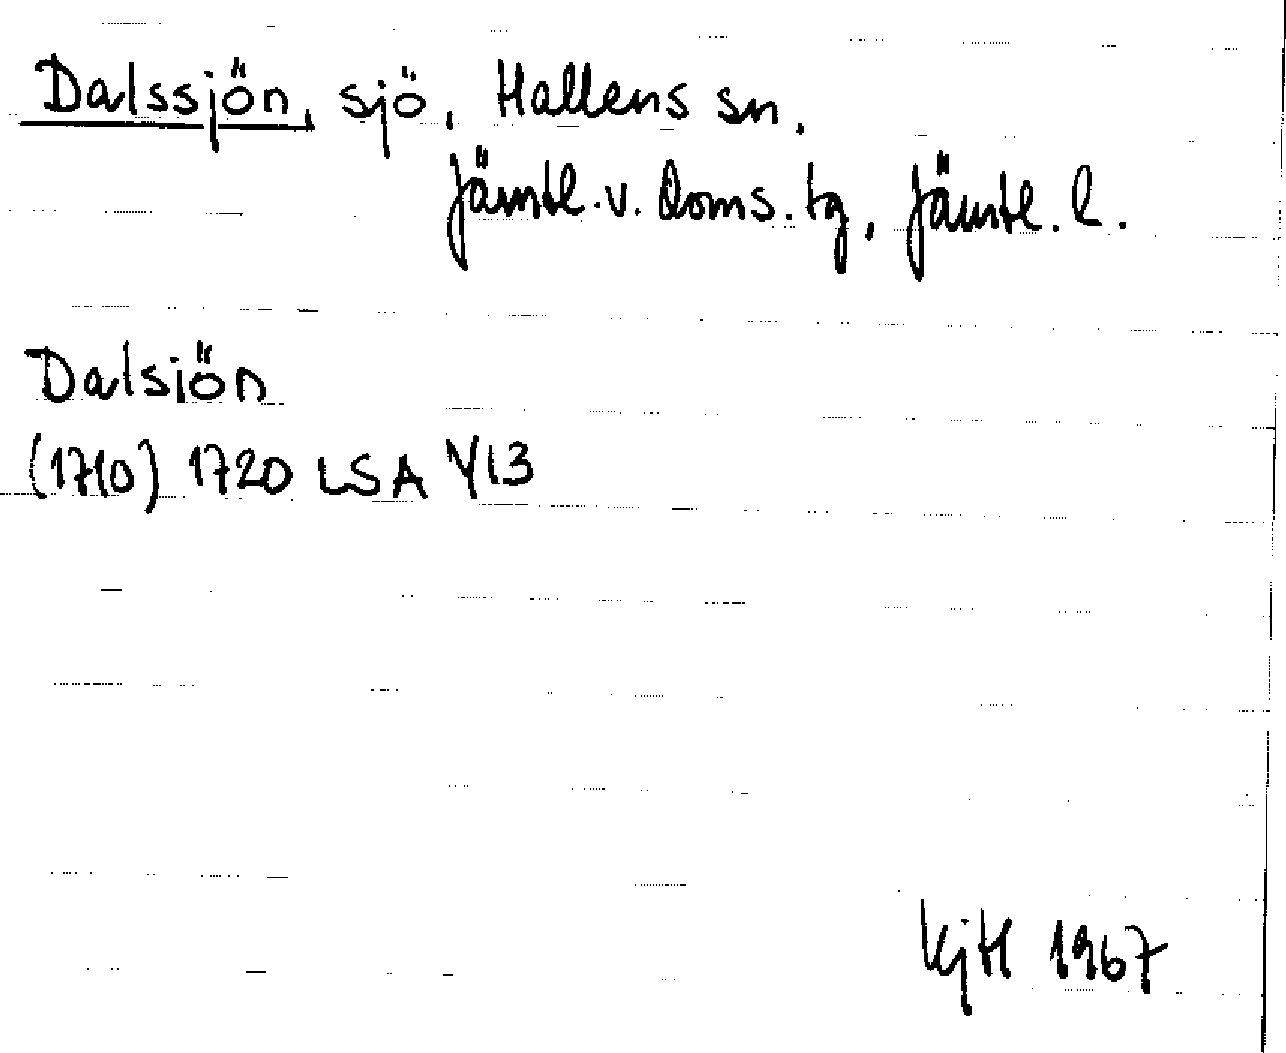 Dalssjön, sjö, Hallens sn.
Jämtl. v. doms. tg, Jämtl. l.
Dalsiön
(1710) 1720 LSA Y13
KjH 1967